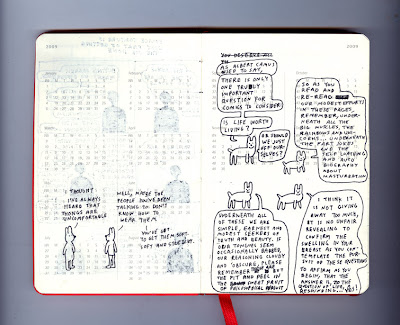 2009
I THOUGHT
I'VE ALWAYS
HEARD THAT
THONGS ARE
UNCOMFORTABLE
WELL, MAYBE THE
PEOPLE YOU'VE BEEN
TALKING TO DON'T
KNOW HOW TO
WEAR THEM.
YOU'VE GOT
TO GET THEM SOFT,
LOFT AND STURDY.
AS ALBERT CAMUS
USED TO SAY,
THERE IS ONLY
ONE TRULY
IMPORTANT
QUESTION FOR
COMICS TO CONSIDER
IS LIFE WORTH
LIVING?
OR SHOULD
WE JUST
KILL OUR-
SELVES?
SO AS YOU
READ AND
RE-READ
OUR MODEST EFFORTS
IN THESE PAGES,
REMEMBER, UNDER-
NEATH ALL THE
BIG MUSCLES, THE
RAINBOWS AND UNI-
CORNS... UNDERNEATH
THE FART JOKES
AND THE
SELF LOATHING
AND AUTO
BIOGRAPHY
ABOUT
MASTURBATING
UNDERNEATH ALL
OF THESE WE ARE
SIMPLE, EARNEST AND
MODEST SEEKERS OF
TRUTH AND BEAUTY. IF
OUR TONGUES SEEM
OCCASIONALLY GARBLED,
OUR REASONING CLOUDY
AND OBSCURE, PLEASE
REMEMBER BUT
THE PIT AND PEEL ON
THE SWEET FRUIT
OF PHILOSOPHICAL PURSUIT
I THINK IT
IS NOT GIVING
AWAY TOO MUCH,
IT IS NO UNFAIR
REVEALING TO
CONFIRM THE
SWELLING IN YOUR
BREAST AS YOU CON-
TEMPLATE THE PUR-
SUIT OF THESE QUESTIONS
TO AFFIRM AS YOU
BEGIN, THAT THE
ANSWER IS, TO THE
QUESTION OF LIFE, A
RESOUNDING... YES!